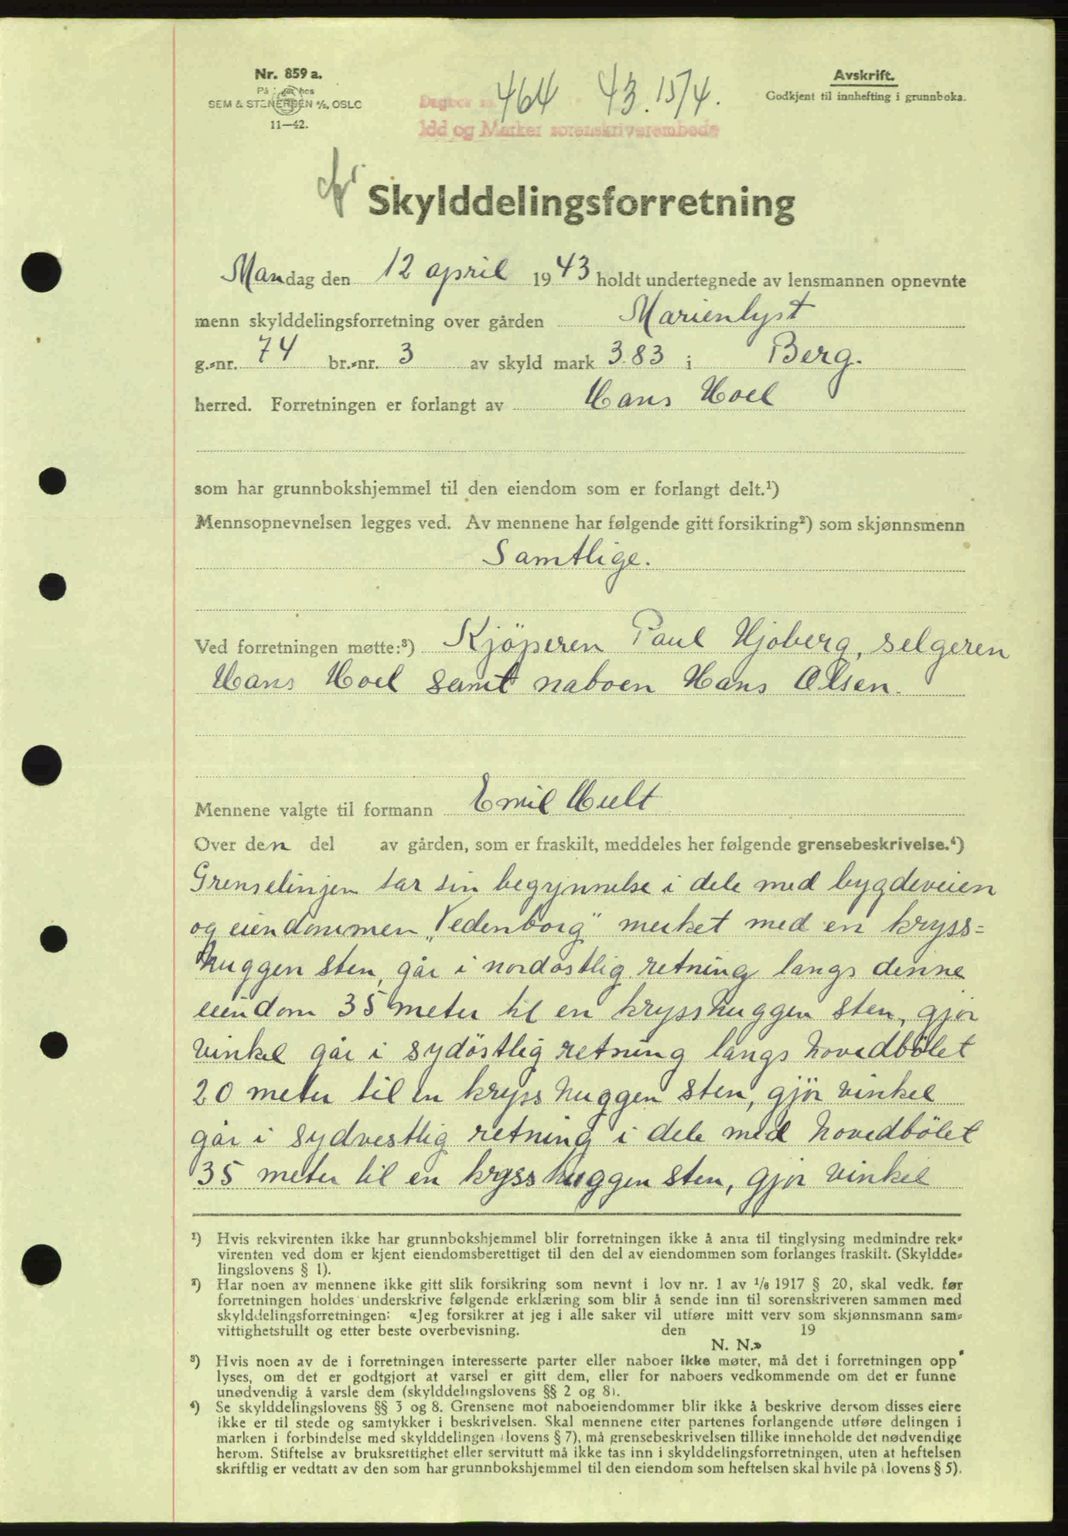 Nr. 859 a.
SEM & STENERSEN A/S, OSLO
11—42.
Dagbok nr. 464 43. 15/4.
Idd og Marker sorenskriverembede
Avskrift.
Godkjent til innhefting i grunnboka.
Skylddelingsforretning
Mandag den 12 april 1943 holdt undertegnede av lensmannen opnevnte
menn skylddelingsforretning over gården Marienlyst
g.-nr. 74 br.-nr. 3 av skyld mark 3.83 i Berg.
herred. Forretningen er forlangt av Hans Hoel
som har grunnbokshjemmel til den eiendom som er forlangt delt.¹)
Mennsopnevnelsen legges ved. Av mennene har følgende gitt forsikring²) som skjønnsmenn
Samtlige.
Ved forretningen møtte:³) Kjöperen Paul Hjöberg, selgeren
Hans Hoel samt naboen Hans Olsen.
Mennene valgte til formann Emil Hult
Over den del av gården, som er fraskilt, meddeles her følgende grensebeskrivelse.⁴)
Grenselinjen tar sin begynnelse i dele med bygdeveien
og eiendommen „Vedenborg" merket med en kryss=
huggen sten, går i nordöstlig retning langs denne
eiendom 35 meter til en krysshuggen sten, gjör
vinkel går i sydöstlig retning langs hovedbölet
20 meter til en kryss huggen sten, gjör vinkel
går i sydvestlig retning i dele med hovedbölet
35 meter til en kryss huggen sten, gjör vinkel
¹) Hvis rekvirenten ikke har grunnbokshjemmel blir forretningen ikke å anta til tinglysing medmindre rek-
virenten ved dom er kjent eiendomsberettiget til den del av eiendommen som forlanges fraskilt. (Skyldde-
lingslovens § 1).
²) Har noen av mennene ikke gitt slik forsikring som nevnt i lov nr. 1 av 1/6 1917 § 20, skal vedk. før
forretningen holdes underskrive følgende erklæring som blir å sende inn til sorenskriveren sammen med
skylddelingsforretningen: «Jeg forsikrer at jeg i alle saker vil utføre mitt verv som skjønnsmann sam-
vittighetsfullt og etter beste overbevisning. den 19
N. N.»
³) Hvis noen av de i forretningen interesserte parter eller naboer ikke møter, må det i forretningen opp
lyses, om det er godtgjort at varsel er gitt dem, eller for naboers vedkommende om det er funne
unødvendig å varsle dem (skylddelingslovens §§ 2 og 8).
⁴) Se skylddelingslovens §§ 3 og 8. Grensene mot naboeiendommer blir ikke å beskrive dersom disses eiere
ikke er til stede og samtykker i beskrivelsen. Skal mennene etter partenes forlangende utføre delingen i
marken i forbindelse med skylddelingen (lovens § 7), må grensebeskrivelsen tillike inneholde det nødvendige
herom. Stiftelse av bruksrettighet eller servitutt må ikke tas inn i skylddelingsforretningen, uten at heftelsen
skriftlig er vedtatt av den som har grunnbokshjemmel til den eiendom som heftelsen skal hvile på (lovens § 5).